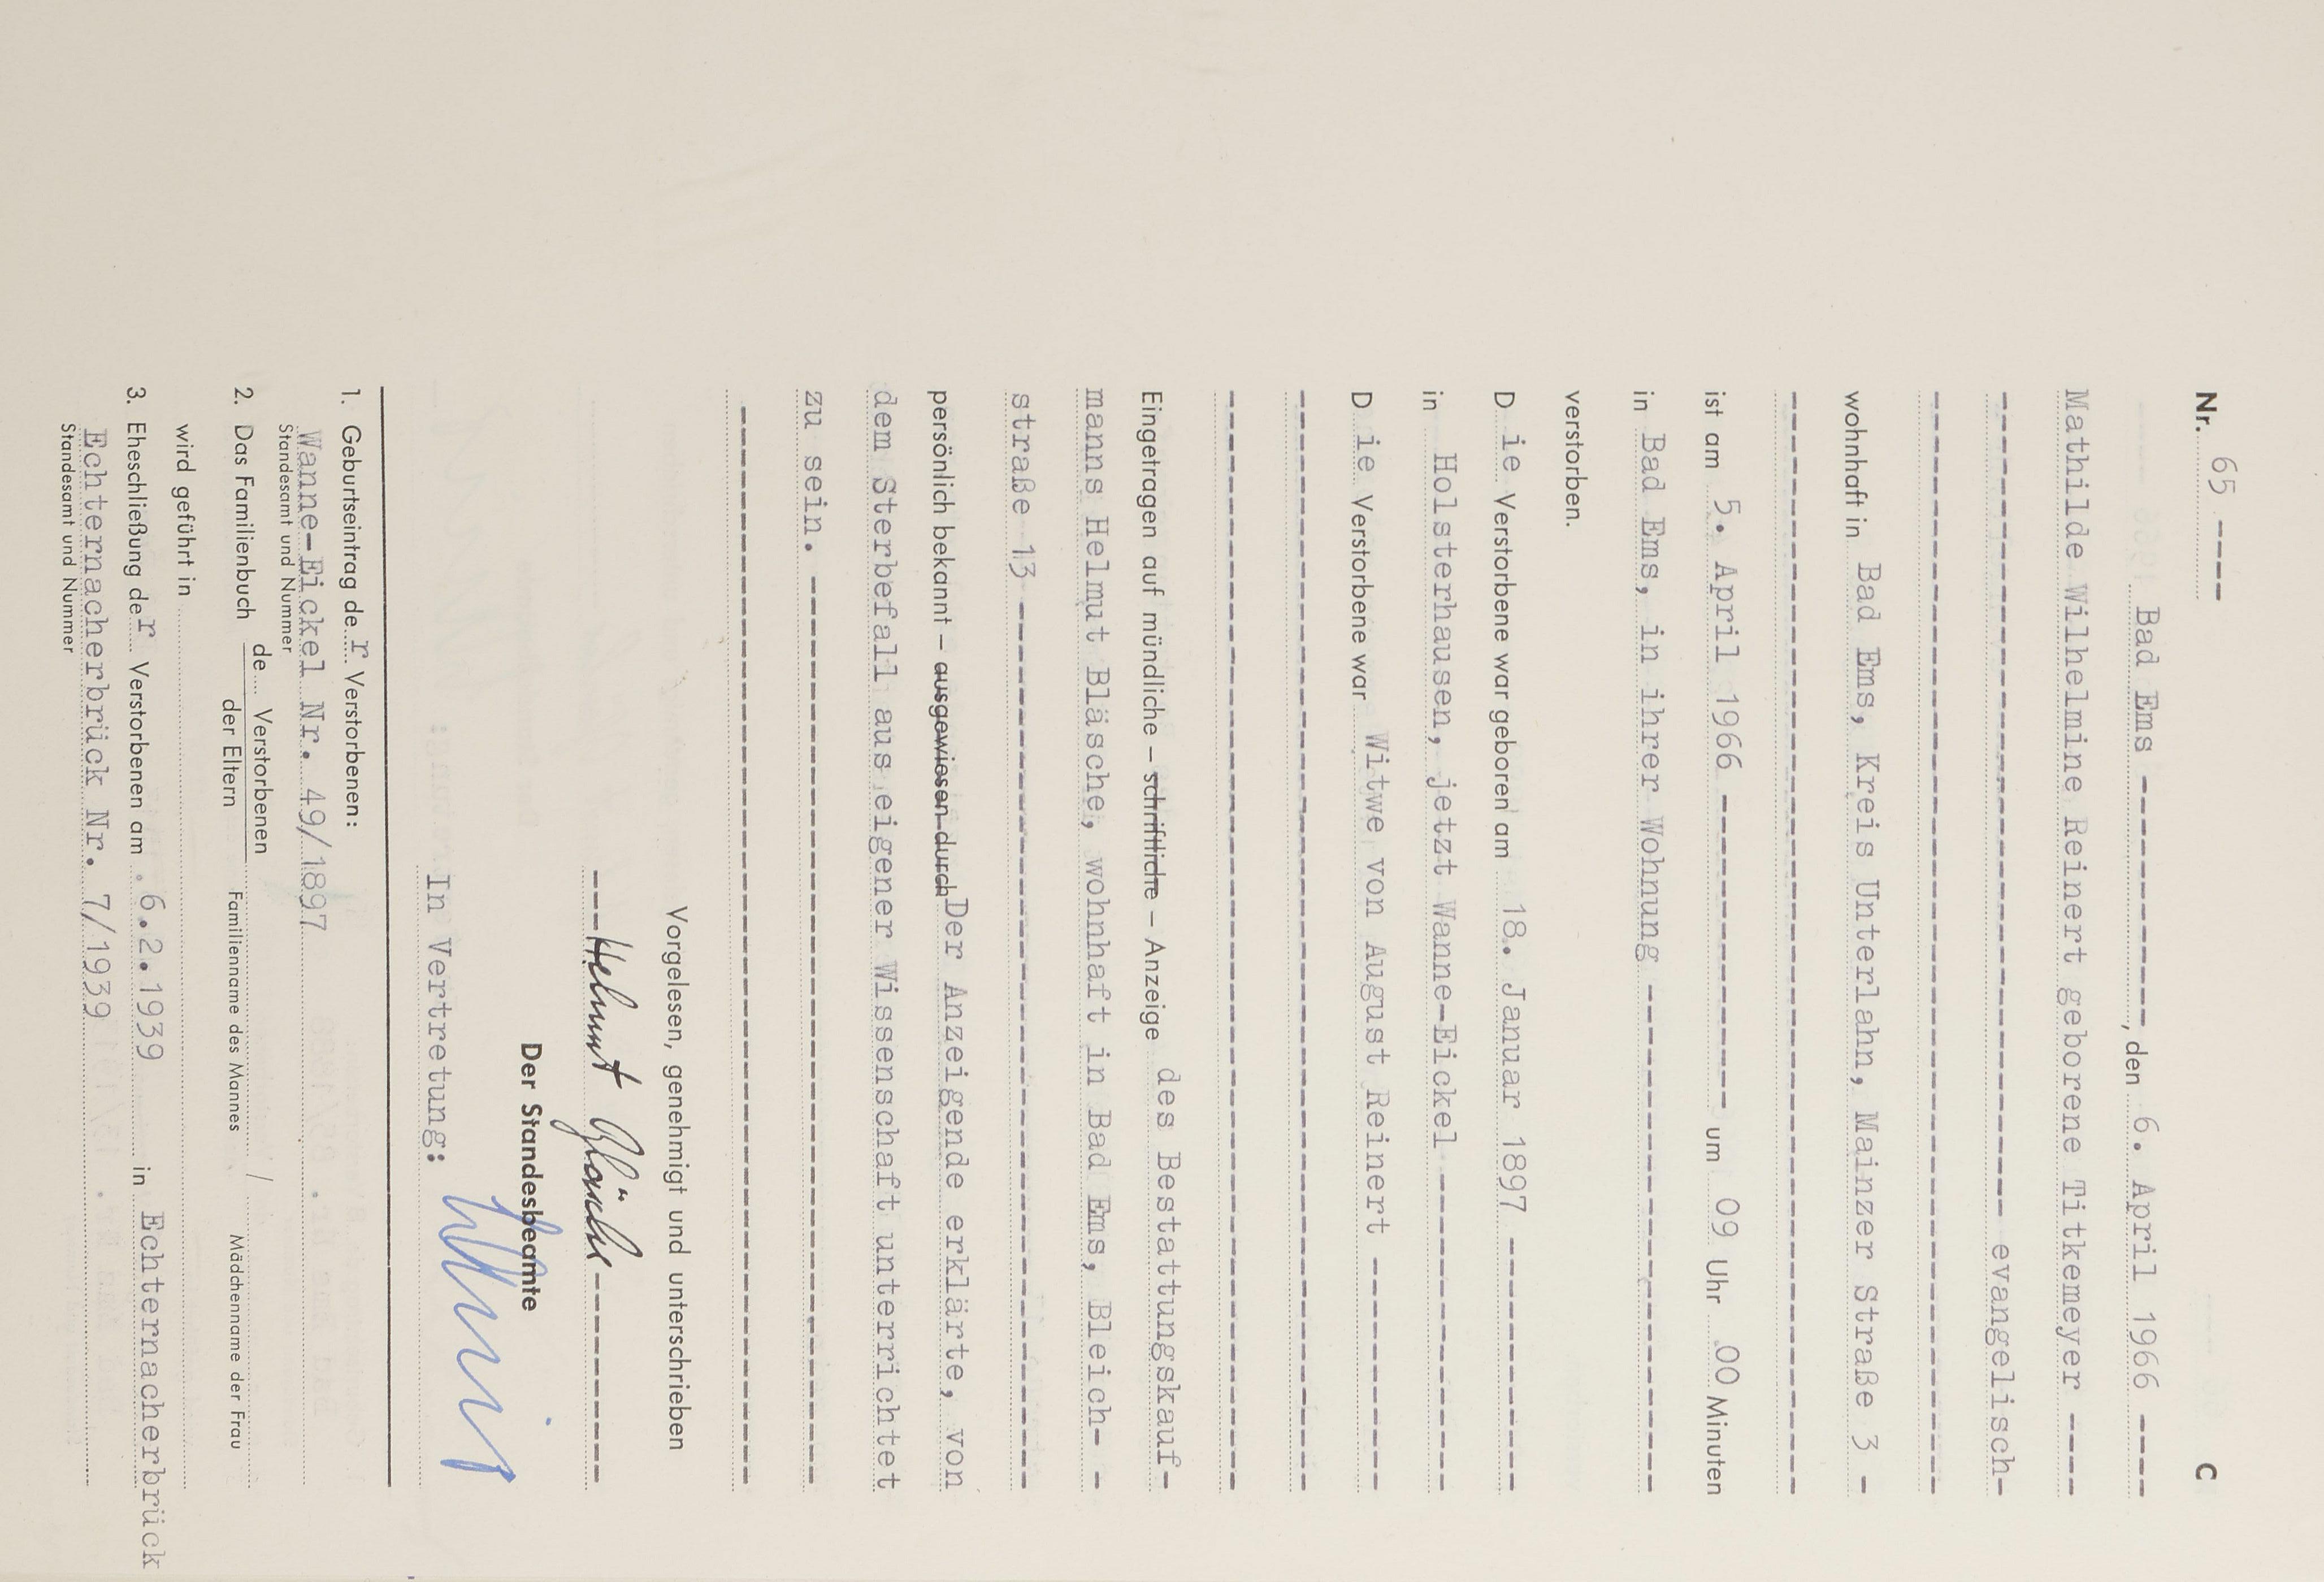 Nr. 65 ---- C
Bad Ems ------------, den 6. April 1966 ----
Mathilde Wilhelmine Reinert geborene Titkemeyer ----
------------------------------ evangelisch-
wohnhaft in Bad Ems, Kreis Unterlahn, Mainzer Straße 3 -
ist am 5. April 1966 ---------------- um 09 Uhr 00 Minuten
in Bad Ems, in ihrer Wohnung --------------------------
verstorben.
Die Verstorbene war geboren am 18. Januar 1897 ------------
in Holsterhausen, jetzt Wanne-Eickel ----------------
Die Verstorbene war Witwe von August Reinert -----------
Eingetragen auf mündliche – schriftliche – Anzeige des Bestattungskauf-
manns Helmut Bläsche, wohnhaft in Bad Ems, Bleich- -
straße 13 --------------------------------------------
persönlich bekannt – ausgewiesen durch Der Anzeigende erklärte, von
dem Sterbefall aus eigener Wissenschaft unterrichtet
zu sein. ----------------------------------------------
Vorgelesen, genehmigt und unterschrieben
---Helmut Bläsche----------
Der Standesbeamte
In Vertretung:
1. Geburtseintrag der Verstorbenen:
Wanne-Eickel Nr. 49/1897
Standesamt und Nummer
2. Das Familienbuch de.... Verstorbenen /
der Eltern Familienname des Mannes Mädchenname der Frau
wird geführt in
3. Eheschließung der Verstorbenen am 6.2.1939 in Echternacherbrück
Echternacherbrück Nr. 7/1939
Standesamt und Nummer